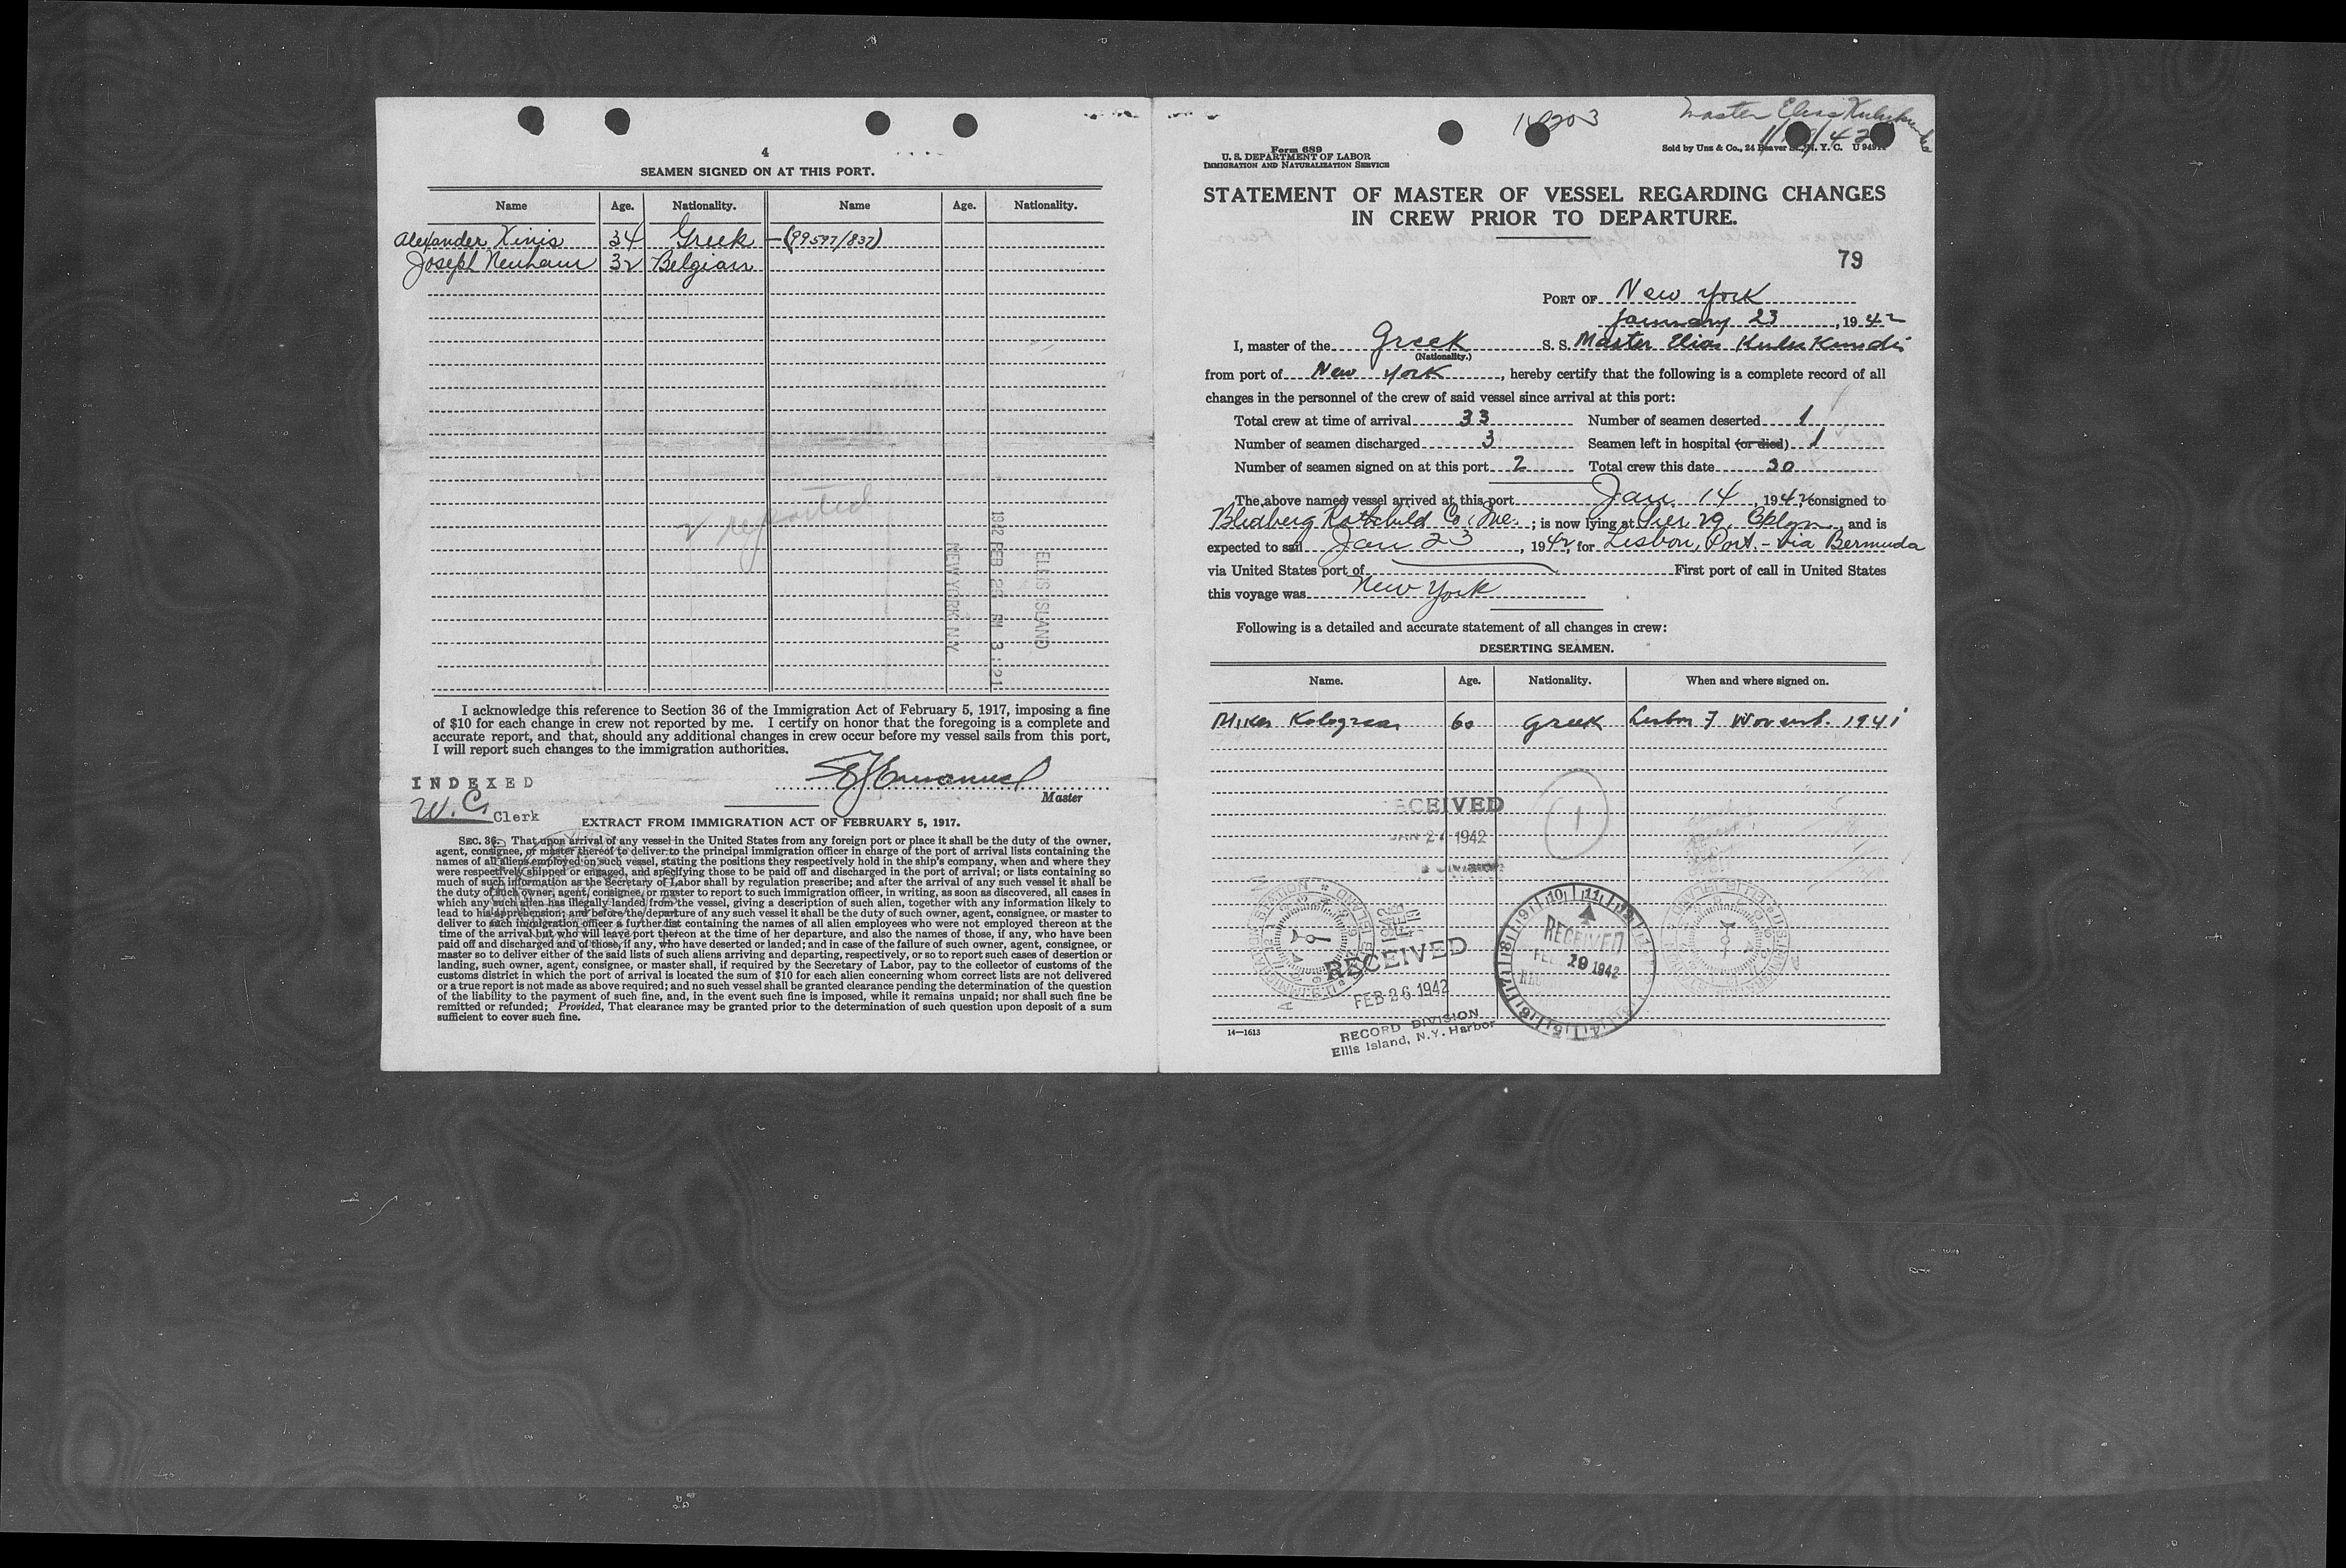 4
SEAMEN SIGNED ON AT THIS PORT.
Name Age. Nationality. Name Age. Nationality.
Alexander Xinis 34 Greek —(99597/837)
Joseph 32 Belgian
2 reported
ELLIS ISLAND
1942 FEB 26 PM 3:21
NEW YORK N.Y.
I acknowledge this reference to Section 36 of the Immigration Act of February 5, 1917, imposing a fine
of $10 for each change in crew not reported by me. I certify on honor that the foregoing is a complete and
accurate report, and that, should any additional changes in crew occur before my vessel sails from this port,
I will report such changes to the immigration authorities.
INDEXED
W.C. Clerk
Emmanuel
Master
EXTRACT FROM IMMIGRATION ACT OF FEBRUARY 5, 1917.
SEC. 36. That upon arrival of any vessel in the United States from any foreign port or place it shall be the duty of the owner,
agent, consignee, or master thereof to deliver to the principal immigration officer in charge of the port of arrival lists containing the
names of all aliens employed on such vessel, stating the positions they respectively hold in the ship's company, when and where they
were respectively shipped or engaged, and specifying those to be paid off and discharged in the port of arrival; or lists containing so
much of such information as the Secretary of Labor shall by regulation prescribe; and after the arrival of any such vessel it shall be
the duty of such owner, agent, consignee, or master to report to such immigration officer, in writing, as soon as discovered, all cases in
which any such alien has illegally landed from the vessel, giving a description of such alien, together with any information likely to
lead to his apprehension; and before the departure of any such vessel it shall be the duty of such owner, agent, consignee, or master to
deliver to such immigration officer a further list containing the names of all alien employees who were not employed thereon at the
time of the arrival but who will leave port thereon at the time of her departure, and also the names of those, if any, who have been
paid off and discharged and of those, if any, who have deserted or landed; and in case of the failure of such owner, agent, consignee, or
master so to deliver either of the said lists of such aliens arriving and departing, respectively, or so to report such cases of desertion or
landing, such owner, agent, consignee, or master shall, if required by the Secretary of Labor, pay to the collector of customs of the
customs district in which the port of arrival is located the sum of $10 for each alien concerning whom correct lists are not delivered
or a true report is not made as above required; and no such vessel shall be granted clearance pending the determination of the question
of the liability to the payment of such fine, and, in the event such fine is imposed, while it remains unpaid; nor shall such fine be
remitted or refunded; Provided, That clearance may be granted prior to the determination of such question upon deposit of a sum
sufficient to cover such fine.
Master Elias Kulukundis
Form 689
U. S. DEPARTMENT OF LABOR
IMMIGRATION AND NATURALIZATION SERVICE
Sold by Unz & Co., 24 Beaver N. Y. C.
STATEMENT OF MASTER OF VESSEL REGARDING CHANGES
IN CREW PRIOR TO DEPARTURE.
79
PORT OF New York
January 23, 1942
I, master of the Greek S. S. Master Elias Kulukundis
(Nationality.)
from port of New York, hereby certify that the following is a complete record of all
changes in the personnel of the crew of said vessel since arrival at this port:
Total crew at time of arrival 33 Number of seamen deserted 1
Number of seamen discharged 3 Seamen left in hospital (or died) 1
Number of seamen signed on at this port 2 Total crew this date 30
The above named vessel arrived at this port Jan. 14, 1942, consigned to
Blidberg Rothchild Co. Inc.; is now lying at Pier 29, Bklyn, and is
expected to sail Jan 23, 1942, for Lisbon, Port. - via Bermuda
via United States port of First port of call in United States
this voyage was New York
Following is a detailed and accurate statement of all changes in crew:
DESERTING SEAMEN.
Name. Age. Nationality. When and where signed on.
60 Greek Lisbon 7 Novemb. 1941
1
RECEIVED
JAN 27 1942
RECEIVED
FEB 26 1942
RECORD DIVISION
Ellis Island, N.Y. Harbor
RECEIVED
FEB 19 1942
14—1613